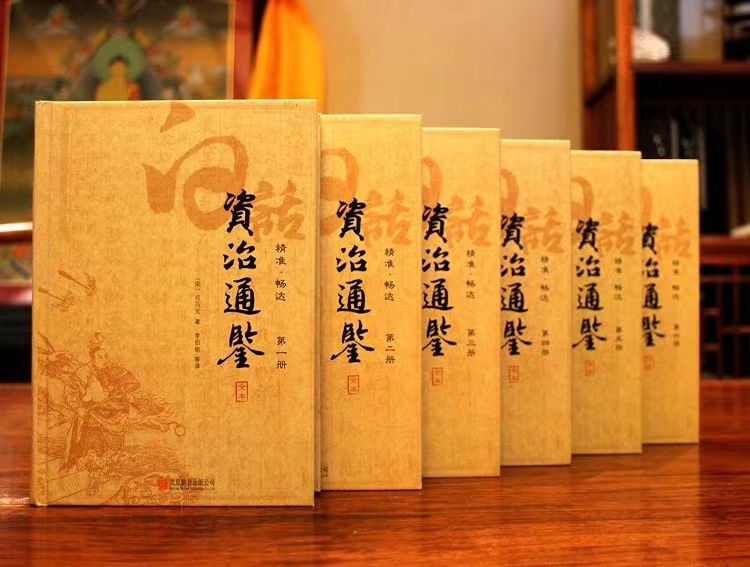 白话
資治通鉴
精准·畅达
第一册
[宋] 司马光 著
李伯钦 等译
全本
北京联合出版公司
Beijing United Publishing Co.,Ltd.
白话
資治通鉴
精准·畅达
第二册
全本
话
資治通鉴
精准·畅达
第三册
全本
话
資治通鉴
精准·畅达
第四册
全本
话
資治通鉴
精准·畅达
第五册
全本
话
資治通鉴
精准·畅达
第六册
全本